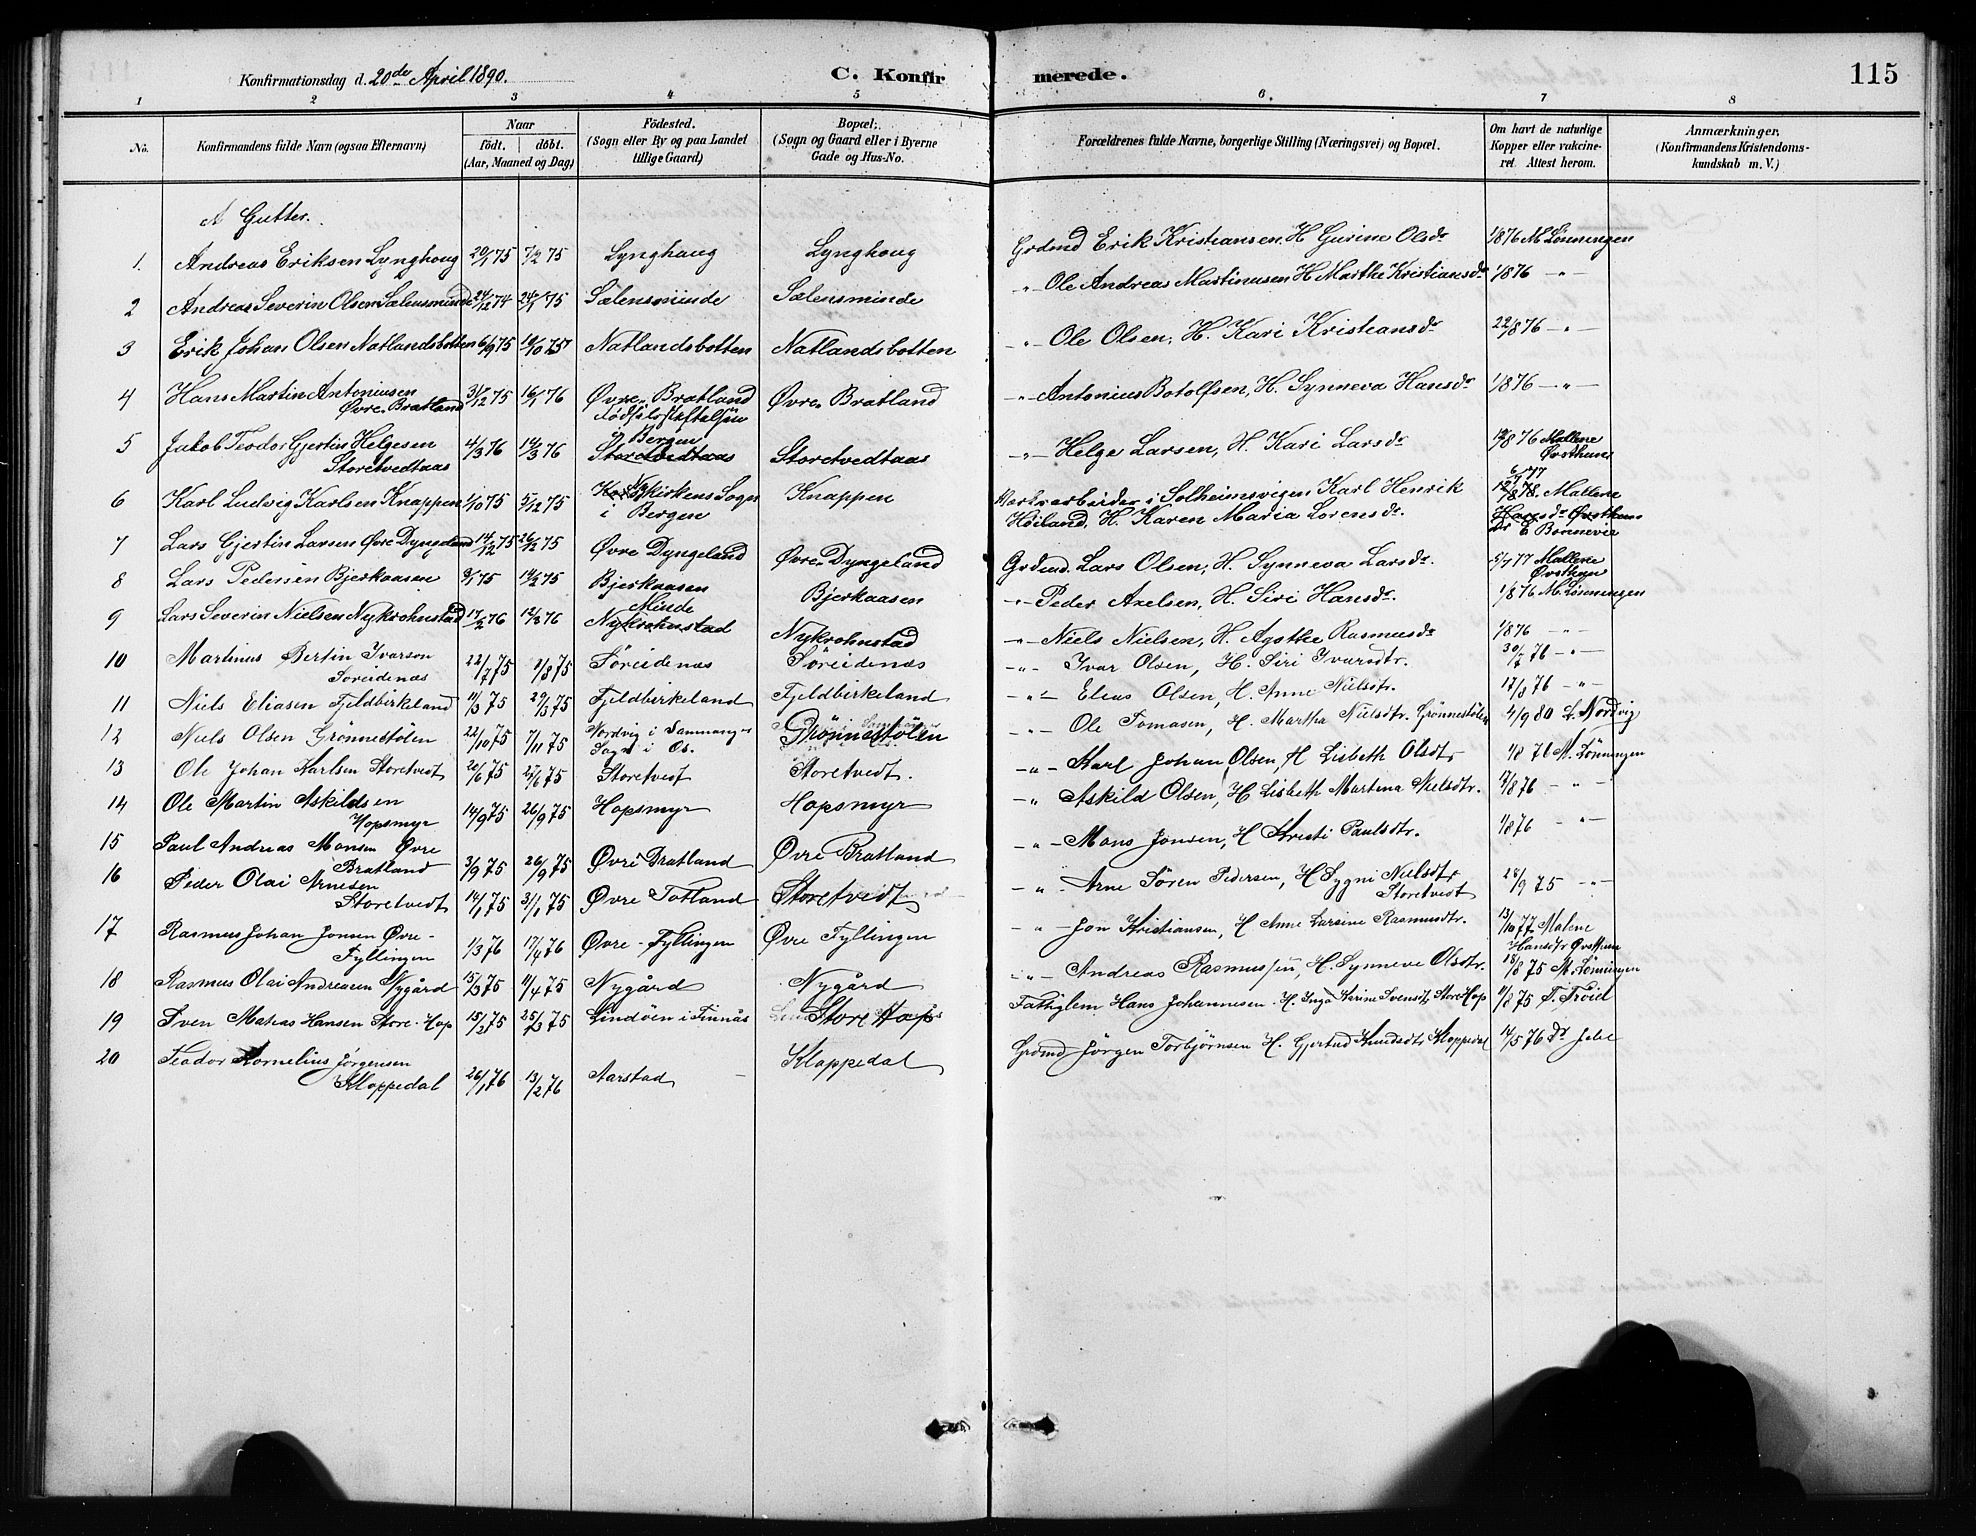 Konfirmationsdag d. 20de April 1890. C. Konfirmerede. 115
1 2 3 4 5 6. 7 8
No. Konfirmandens fulde Navn (ogsaa Efternavn) Naar født. døbt. (Aar, Maaned og Dag) Fødested. (Sogn eller By og paa Landet tillige Gaard) Bopæl. (Sogn og Gaard eller i Byerne Gade og Hus-No. Forældrenes fulde Navne, borgerlige Stilling (Næringsvei) og Bopæl. Om havt de naturlige Kopper eller vakcineret. Attest herom. Anmærkninger. (Konfirmandens Kristendomskundskab m. V.)
A Gutter.
1. Andreas Eriksen Lynghoug 20/1 75 7/2 75 Lynghaug Lynghoug Grdmd Erik Kristiansen, H Gurine Olsdr 1/8 76 M Lønningen
2 Andreas Severin Olsen Sælensminde 24/12 74 24/1 75 Sælensminde Sælensminde -"- Ole Andreas Martinusen H. Marthe Kristiansdr 1/8 76 -"-
3 Erik Johan Olsen Natlandsbotten 6/9 75 10/10 75 Natlandsbotten Natlandsbotten -"- Ole Olsen, H. Kari Kristiansdr 22/8 76 -"-
4 Hans Martin Antoniusen Øvre Bratland 31/12 75 16/1 76 Øvre Bratland Øvre Bratland -"- Antonius Botolfsen, H. Synneva Hansdr 1/8 76 -"-
5 Jakob Teodor Gjertin Helgesen Storetvedtaas 4/3 76 14/3 76 Fødselsstiftelsen i Bergen Storetvedtaas Storetvedtaas -"- Helge Larsen, H. Kari Larsdr 12/8 76 Mallene Øvsthuns
6 Karl Ludvig Karlsen Knappen 1/10 75 5/12 75 Korskirkens Sogn i Bergen Knappen Værkarbeider i Solheimsvigen Karl Henrik Høiland, H. Karen Maria Lorensdr. 12/8 78. Mallene Hansdr Øvsthuns Dr E Bonnevie
7 Lars Gjertin Larsen Øvre Dyngeland 14/12 75 26/12 75 Øvre Dyngeland Øvre Dyngeland Grdmd. Lars Olsen, H. Synneva Larsdr. 5/7 77 Mallene Øvsthun
8 Lars Pedersen Bjerkaasen 9/1 75 14/2 75 Bjerkaasen Bjerkaasen -"- Peder Axelsen, H. Siri Hansdr. 1/8 76 M. Lønningen
9 Lars Severin Nielsen Nykrohnstad 17/2 76 12/3 76 Minde Nykrohnstad Nykrohnstad -"- Niels Nielsen, H. Agathe Rasmusdr 1/8 76 -"-
10 Martinus Bertin Ivarson Soreidenæs 22/7 75 1/8 75 Søreidenæs Søreidenæs -"- Ivar Olsen, H. Siri Ivarsdtr. 30/7 76 -"-
11 Niels Eliasen Fjeldbirkeland 11/3 75 29/3 75 Fjeldbirkeland Fjeldbirkeland -"- Elias Olsen, H. Anne Nielsdtr. 17/8 76 -"-
12 Niels Olsen Grönnestölen 22/10 75 7/11 75 Nordvig i Samnanger Sogn i Os. Grönnestölen -"- Ole Tomasen, H. Martha Nielsdtr. Grönnestölen 4/9 80 L. Nordvig
13 Ole Johan Karlsen Storetvedt 20/6 75 27/6 75 Storetvedt Storetvedt. -"- Karl Johan Olsen, H Lisbeth Olsdtr 1/8 76 M. Lönningen
14 Ole Martin Askildsen Hopsmyr 14/9 75 26/9 75 Hopsmyr Hopsmyr -"- Askild Olsen, H Lisbeth Martina Nielsdtr. 17/8 76 -"-
15 Paul Andreas Monsen Øvre Bratland 3/9 75 26/9 75 Øvre Bratland Øvre Bratland -"- Mons Jonsen, H Kristi Paulsdtr. 1/8 76 -"-
16 Peder Olai Arnesen Storetvedt 14/1 75 31/1 75 Øvre Totland Storetvedt -"- Arne Sören Pedersen, H Sygni Nielsdtr Storetvedt 28/9 75 -"-
17 Rasmus Johan Jonsen Øvre-Fyllingen 1/3 76 17/4 76 Øvre-Fyllingen Øvre Fyllingen -"- Jon Kristiansen, H Anne Larsine Rasmusdtr. 13/10 77 Malene Hansdtr Øvsthun
18 Rasmus Olai Andreasen Nygård 15/3 75 11/4 75 Nygård Nygård -"- Andreas Rasmussen, H. Synneve Olsdtr. 18/8 75 M. Lönningen
19 Sven Matias Hansen Store-Hop 15/2 75 25/3 75 Lindöen i Finnås Store Hop Fattiglem Hans Johannesen. H. Inga Karine Svensdtr Store Hop 11/8 75 T. Troid
20 Teodor Kornelius Jørgensen Kloppedal 26/1 76 13/2 76 Aarstad Kloppedal Grdmd Jörgen Torbjörnsen H. Gjertrud Knudsdtr Kloppedal 14/5 76 Dr Jebe